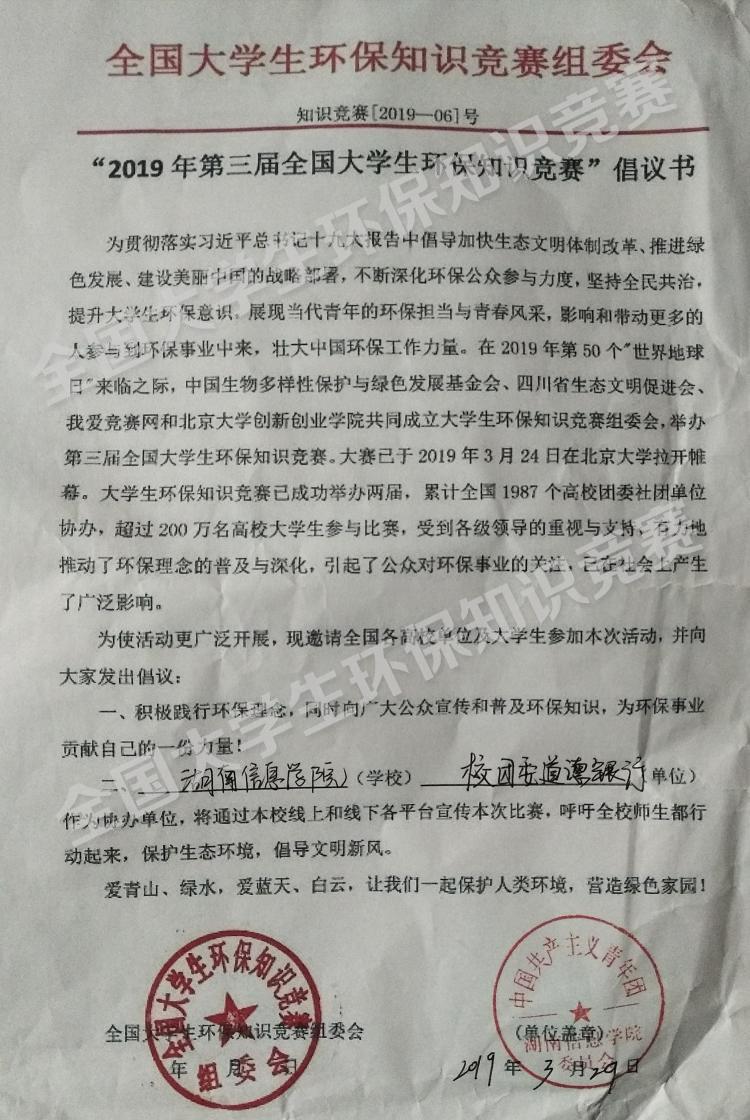 全国大学生环保知识竞赛组委会
知识竞赛[2019—06]号
“2019年第三届全国大学生环保知识竞赛”倡议书
为贯彻落实习近平总书记十九大报告中倡导加快生态文明体制改革、推进绿
色发展、建设美丽中国的战略部署，不断深化环保公众参与力度，坚持全民共治，
提升大学生环保意识，展现当代青年的环保担当与青春风采，影响和带动更多的
人参与到环保事业中来，壮大中国环保工作力量。在2019年第50个"世界地球
日"来临之际，中国生物多样性保护与绿色发展基金会、四川省生态文明促进会、
我爱竞赛网和北京大学创新创业学院共同成立大学生环保知识竞赛组委会,举办
第三届全国大学生环保知识竞赛。大赛已于2019年3月24日在北京大学拉开帷
幕。大学生环保知识竞赛已成功举办两届，累计全国1987个高校团委社团单位
协办，超过200万名高校大学生参与比赛，受到各级领导的重视与支持、有力地
推动了环保理念的普及与深化，引起了公众对环保事业的关注，已在社会上产生
了广泛影响。
为使活动更广泛开展，现邀请全国各高校单位及大学生参加本次活动，并向
大家发出倡议：
一、积极践行环保理念，同时向广大公众宣传和普及环保知识，为环保事业
贡献自己的一份力量！
二、湖南信息学院（学校）校团委道德银行单位）
作为协办单位，将通过本校线上和线下各平台宣传本次比赛，呼吁全校师生都行
动起来，保护生态环境，倡导文明新风。
爱青山、绿水，爱蓝天、白云，让我们一起保护人类环境，营造绿色家园！
全国大学生环保知识竞赛
组委会
中国共产主义青年团
湖南信息学院
委员会
全国大学生环保知识竞赛组委会
（单位盖章）
年 月 日
2019年3月29日
全国大学生环保知识竞赛
全国大学生环保知识竞赛